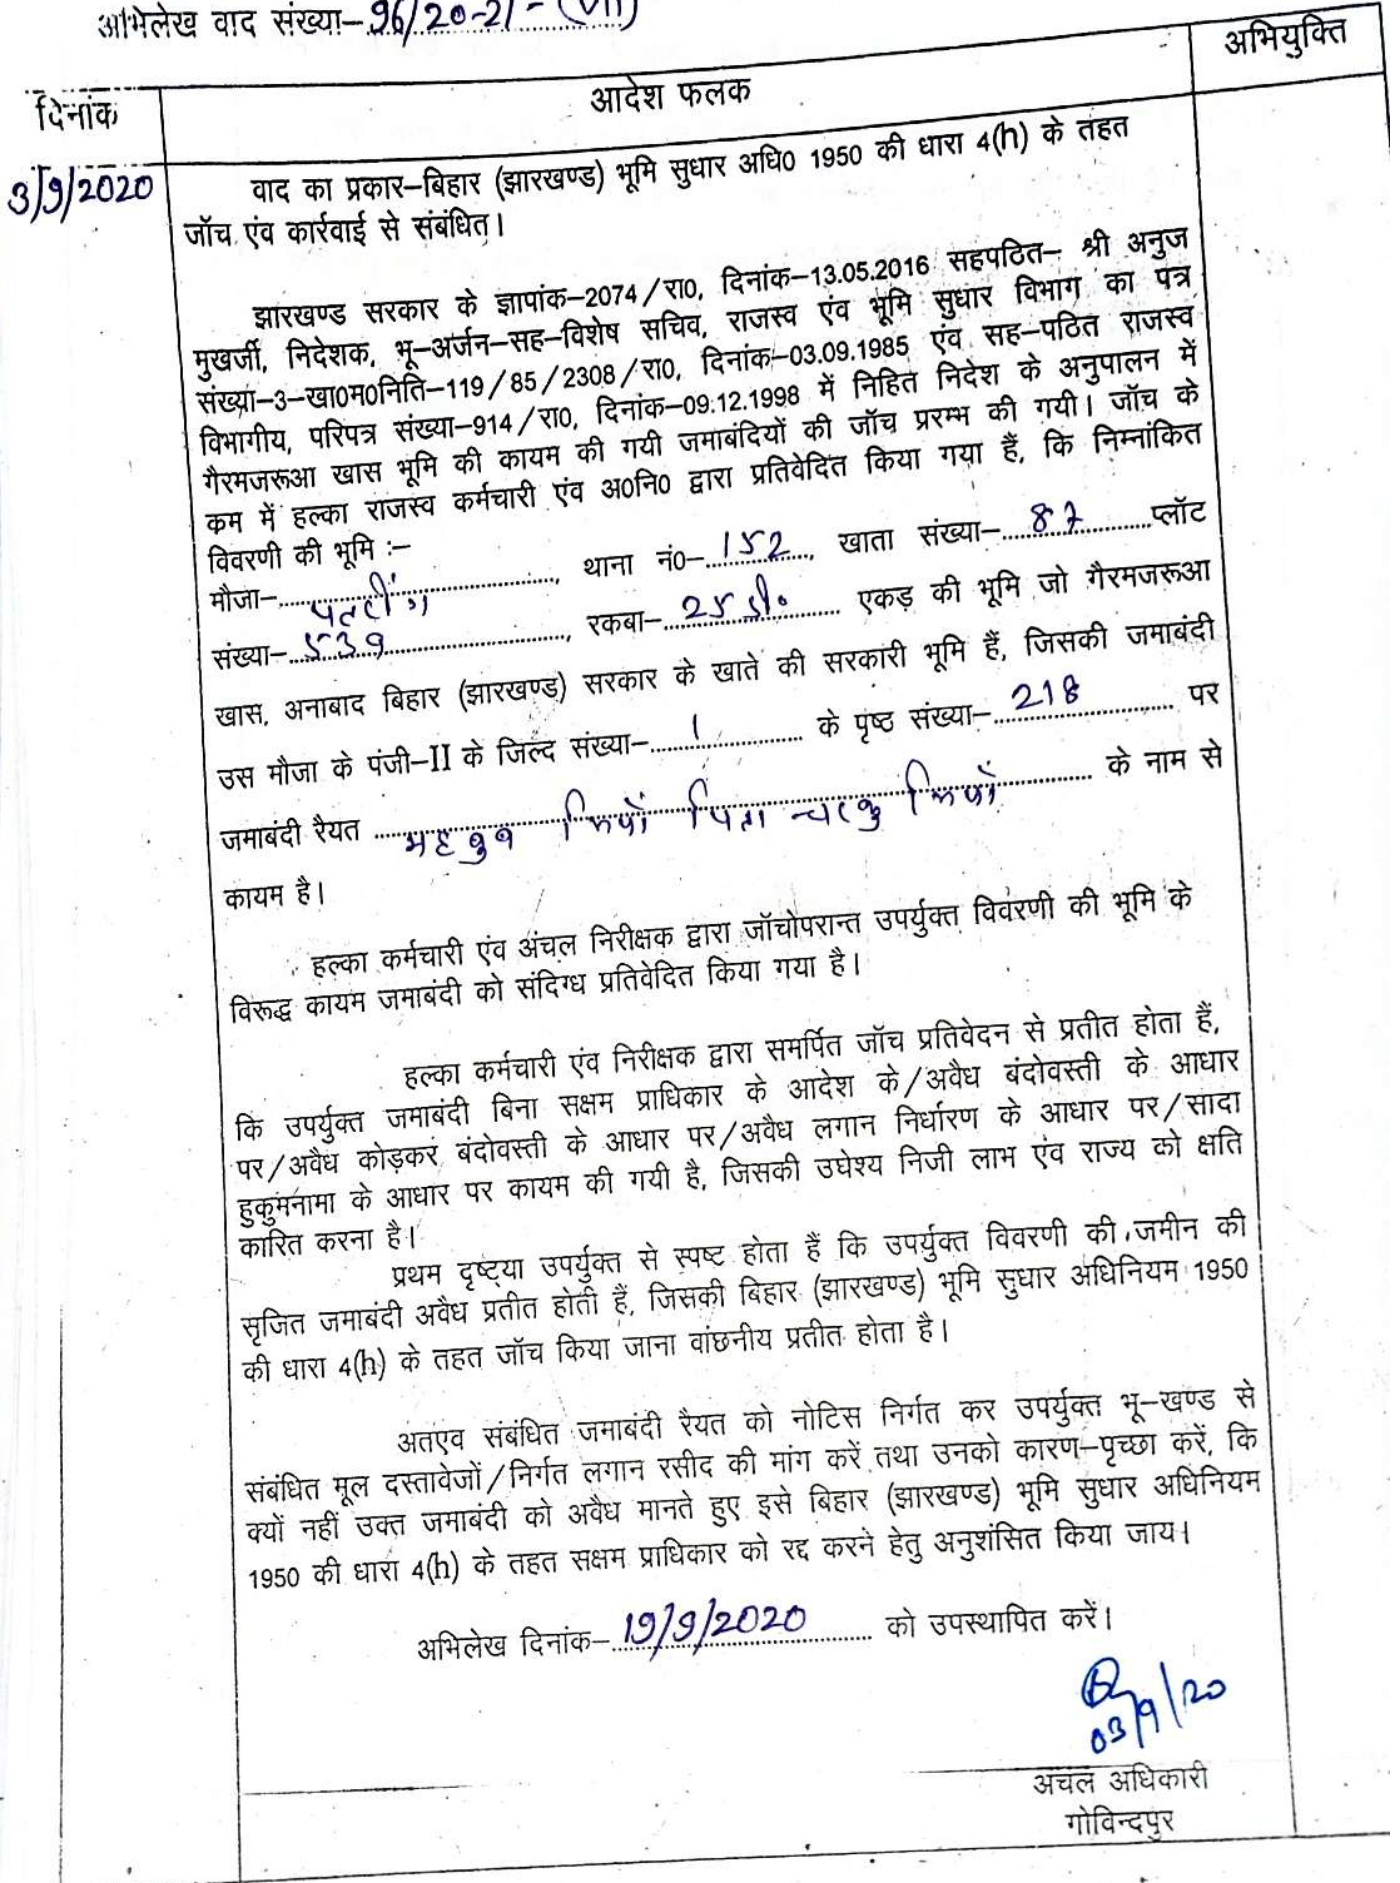 अभिलेख वाद संख्या–96/20-21-(VII)
दिनांक
आदेश फलक
अभियुक्ति
3/9/2020
वाद का प्रकार–बिहार (झारखण्ड) भूमि सुधार अधि0 1950 की धारा 4(h) के तहत
जॉच एंव कार्रवाई से संबंधित।
झारखण्ड सरकार के ज्ञापांक–2074/रा0, दिनांक–13.05.2016 सहपठित– श्री अनुज
मुखर्जी, निदेशक, भू–अर्जन–सह–विशेष सचिव, राजस्व एंव भूमि सुधार विभाग का पत्र
संख्या–3–खा0म0निति–119/85/2308/रा0, दिनांक–03.09.1985 एंव सह–पठित राजस्व
विभागीय, परिपत्र संख्या–914/रा0, दिनांक–09.12.1998 में निहित निदेश के अनुपालन में
गैरमजरूआ खास भूमि की कायम की गयी जमाबंदियों की जॉच प्ररम्भ की गयी। जॉच के
क्रम में हल्का राजस्व कर्मचारी एंव अ0नि0 द्वारा प्रतिवेदित किया गया हैं, कि निम्नांकित
विवरणी की भूमि :–
मौजा–.........., थाना नं0–152, खाता संख्या–87 प्लॉट
संख्या–539, रकबा–25 डी० एकड़ की भूमि जो गैरमजरूआ
खास, अनाबाद बिहार (झारखण्ड) सरकार के खाते की सरकारी भूमि हैं, जिसकी जमाबंदी
उस मौजा के पंजी–II के जिल्द संख्या–1 के पृष्ठ संख्या–218 पर
जमाबंदी रैयत .......... मियाँ पिता .......... मियाँ के नाम से
कायम है।
हल्का कर्मचारी एंव अंचल निरीक्षक द्वारा जॉचोपरान्त उपर्युक्त विवरणी की भूमि के
विरूद्ध कायम जमाबंदी को संदिग्ध प्रतिवेदित किया गया है।
हल्का कर्मचारी एंव निरीक्षक द्वारा समर्पित जॉच प्रतिवेदन से प्रतीत होता हैं,
कि उपर्युक्त जमाबंदी बिना सक्षम प्राधिकार के आदेश के/अवैध बंदोवस्ती के आधार
पर/अवैध कोड़कर बंदोवस्ती के आधार पर/अवैध लगान निर्धारण के आधार पर/सादा
हुकुमनामा के आधार पर कायम की गयी है, जिसकी उघेश्य निजी लाभ एंव राज्य को क्षति
कारित करना है।
प्रथम दृष्ट्या उपर्युक्त से स्पष्ट होता हैं कि उपर्युक्त विवरणी की जमीन की
सृजित जमाबंदी अवैध प्रतीत होती हैं, जिसकी बिहार (झारखण्ड) भूमि सुधार अधिनियम 1950
की धारा 4(h) के तहत जॉच किया जाना वांछनीय प्रतीत होता है।
अतएव संबंधित जमाबंदी रैयत को नोटिस निर्गत कर उपर्युक्त भू–खण्ड से
संबंधित मूल दस्तावेजों/निर्गत लगान रसीद की मांग करें तथा उनको कारण–पृच्छा करें, कि
क्यों नहीं उक्त जमाबंदी को अवैध मानते हुए इसे बिहार (झारखण्ड) भूमि सुधार अधिनियम
1950 की धारा 4(h) के तहत सक्षम प्राधिकार को रद्द करने हेतु अनुशंसित किया जाय।
अभिलेख दिनांक–19/9/2020 को उपस्थापित करें।
03/9/20
अचल अधिकारी
गोविन्दपुर